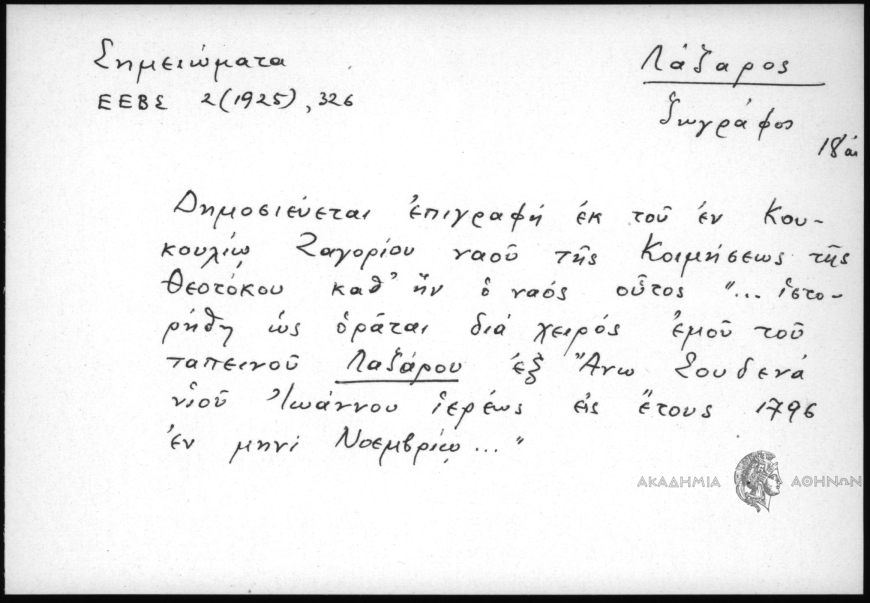 Σημειώματα
ΕΕΒΣ 2(1925), 326
Λάζαρος
ζωγράφος
18 αι
Δημοσιεύεται ἐπιγραφή ἐκ τοῦ ἐν Κου-
κουλίῳ Ζαγορίου ναοῦ τῆς Κοιμήσεως τῆς
Θεοτόκου καθ' ἥν ὁ ναός οὗτος "... ἱστο-
ρήθη ὡς ὁρᾶται διά χειρός ἐμοῦ τοῦ
ταπεινοῦ Λαζάρου ἐξ Ἄνω Σουδενά
υἱοῦ Ἰωάννου ἱερέως εἰς ἔτους 1796
ἐν μηνί Νοεμβρίῳ..."
ΑΚΑΔΗΜΙΑ ΑΘΗΝΩΝ